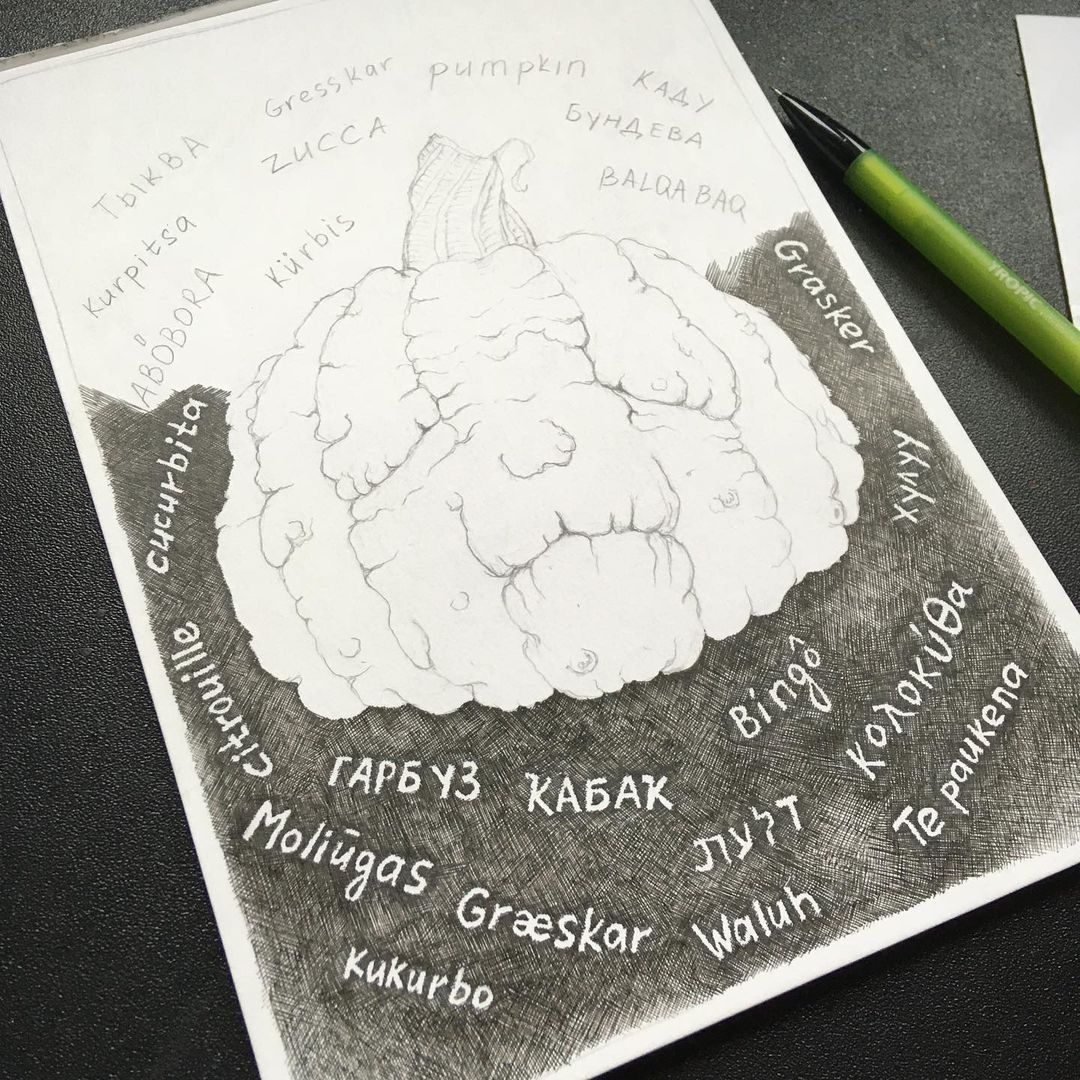 Gresskar
pumpkin
КАДУ
ТЫКВА
ZUCCA
БУНДЕВА
BALQABAQ
Kurpitsa
Kürbis
ABÓBORA
Grasker
TROPIC
cucurbita
хулуу
citrouille
Bingô
κολοκύθα
Te paukena
ГАРБУЗ
ҚАБАҚ
דלעת
Moliūgas
Græskar
Waluh
Kukurbo